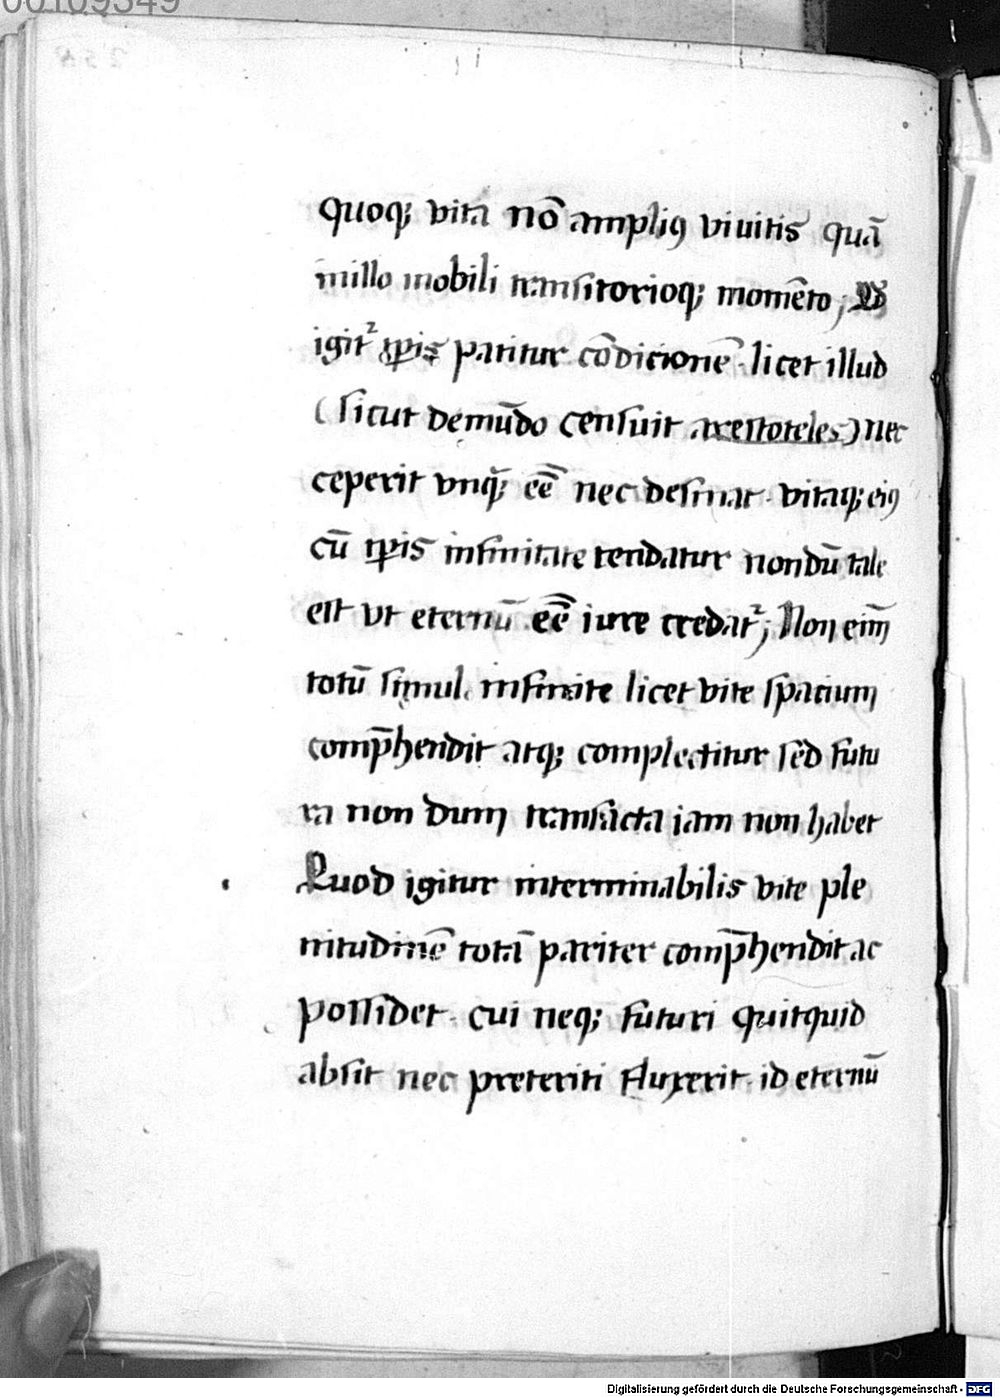 00109349
quoqꝫ vita nō ampliꝰ viuitis quā
in illo mobili transitorioqꝫ momēto; Qd
igit᷑ tp̄is patitur cōdicionē · licet illud
(sicut de mūdo censuit arestoteles) nec
ceperit vnq̄ꝫ eē nec desinat · vitaqꝫ eiꝰ
cū tp̄is infinitate tendatur nondū tale
est vt eternū eē iure credat᷑; Non eīm
totū simul infinite licet vite spatium
comp̄hendit atqꝫ complectitur sed futu
ra non dum transacta iam non habet
Quod igitur interminabilis vite ple
nitudinē totā pariter comp̄hendit ac
possidet · cui neqꝫ futuri quitquid
absit nec preteriti fluxerit · id eternū
Digitalisierung gefördert durch die Deutsche Forschungsgemeinschaft - DFG